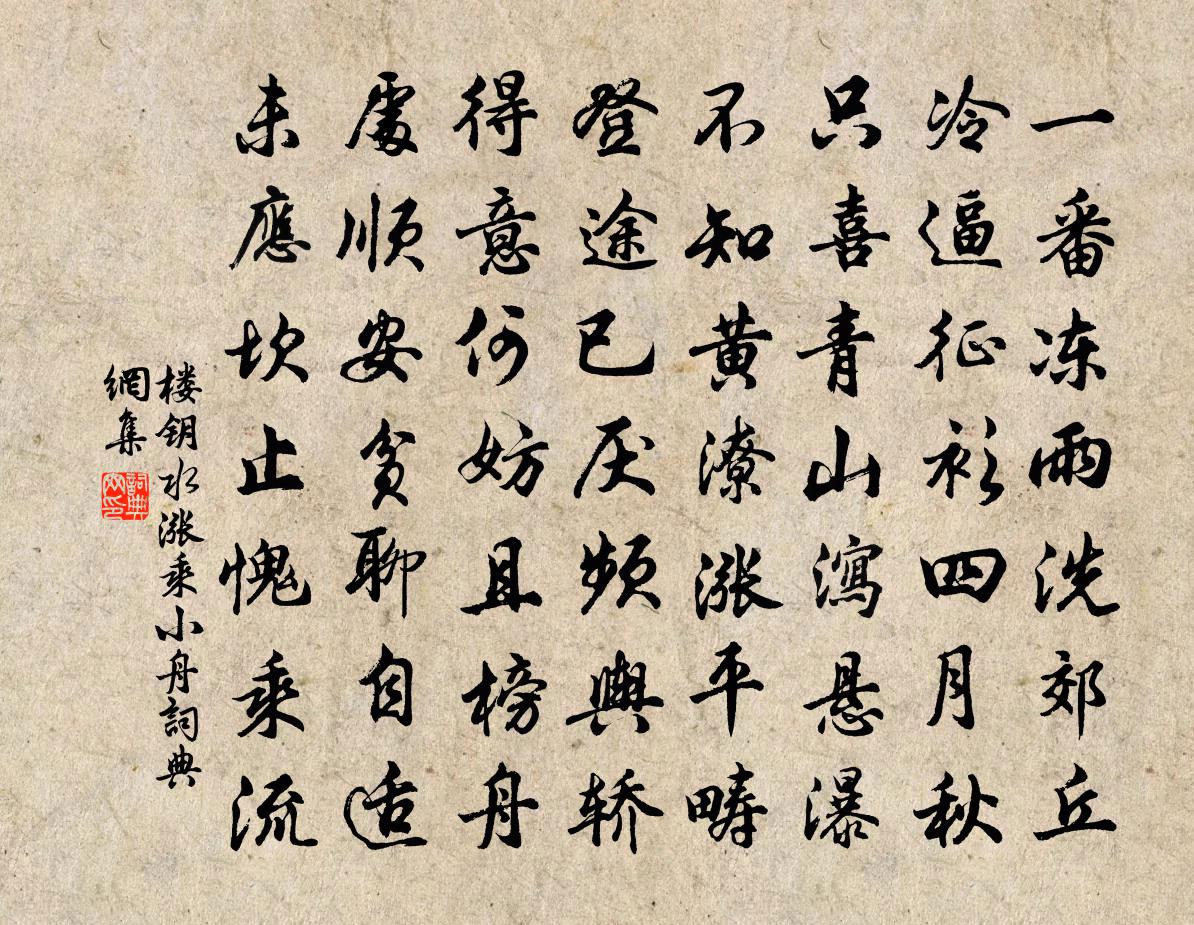 一番冻雨洗郊丘
冷逼征衫四月秋
只喜青山瀉悬瀑
不知黄潦涨平畴
登途已厌频舆轿
得意何妨且榜舟
處顺安贫聊自适
未應坎止愧乘流
楼钥水漲乘小舟詞典
網集
詞典
网印